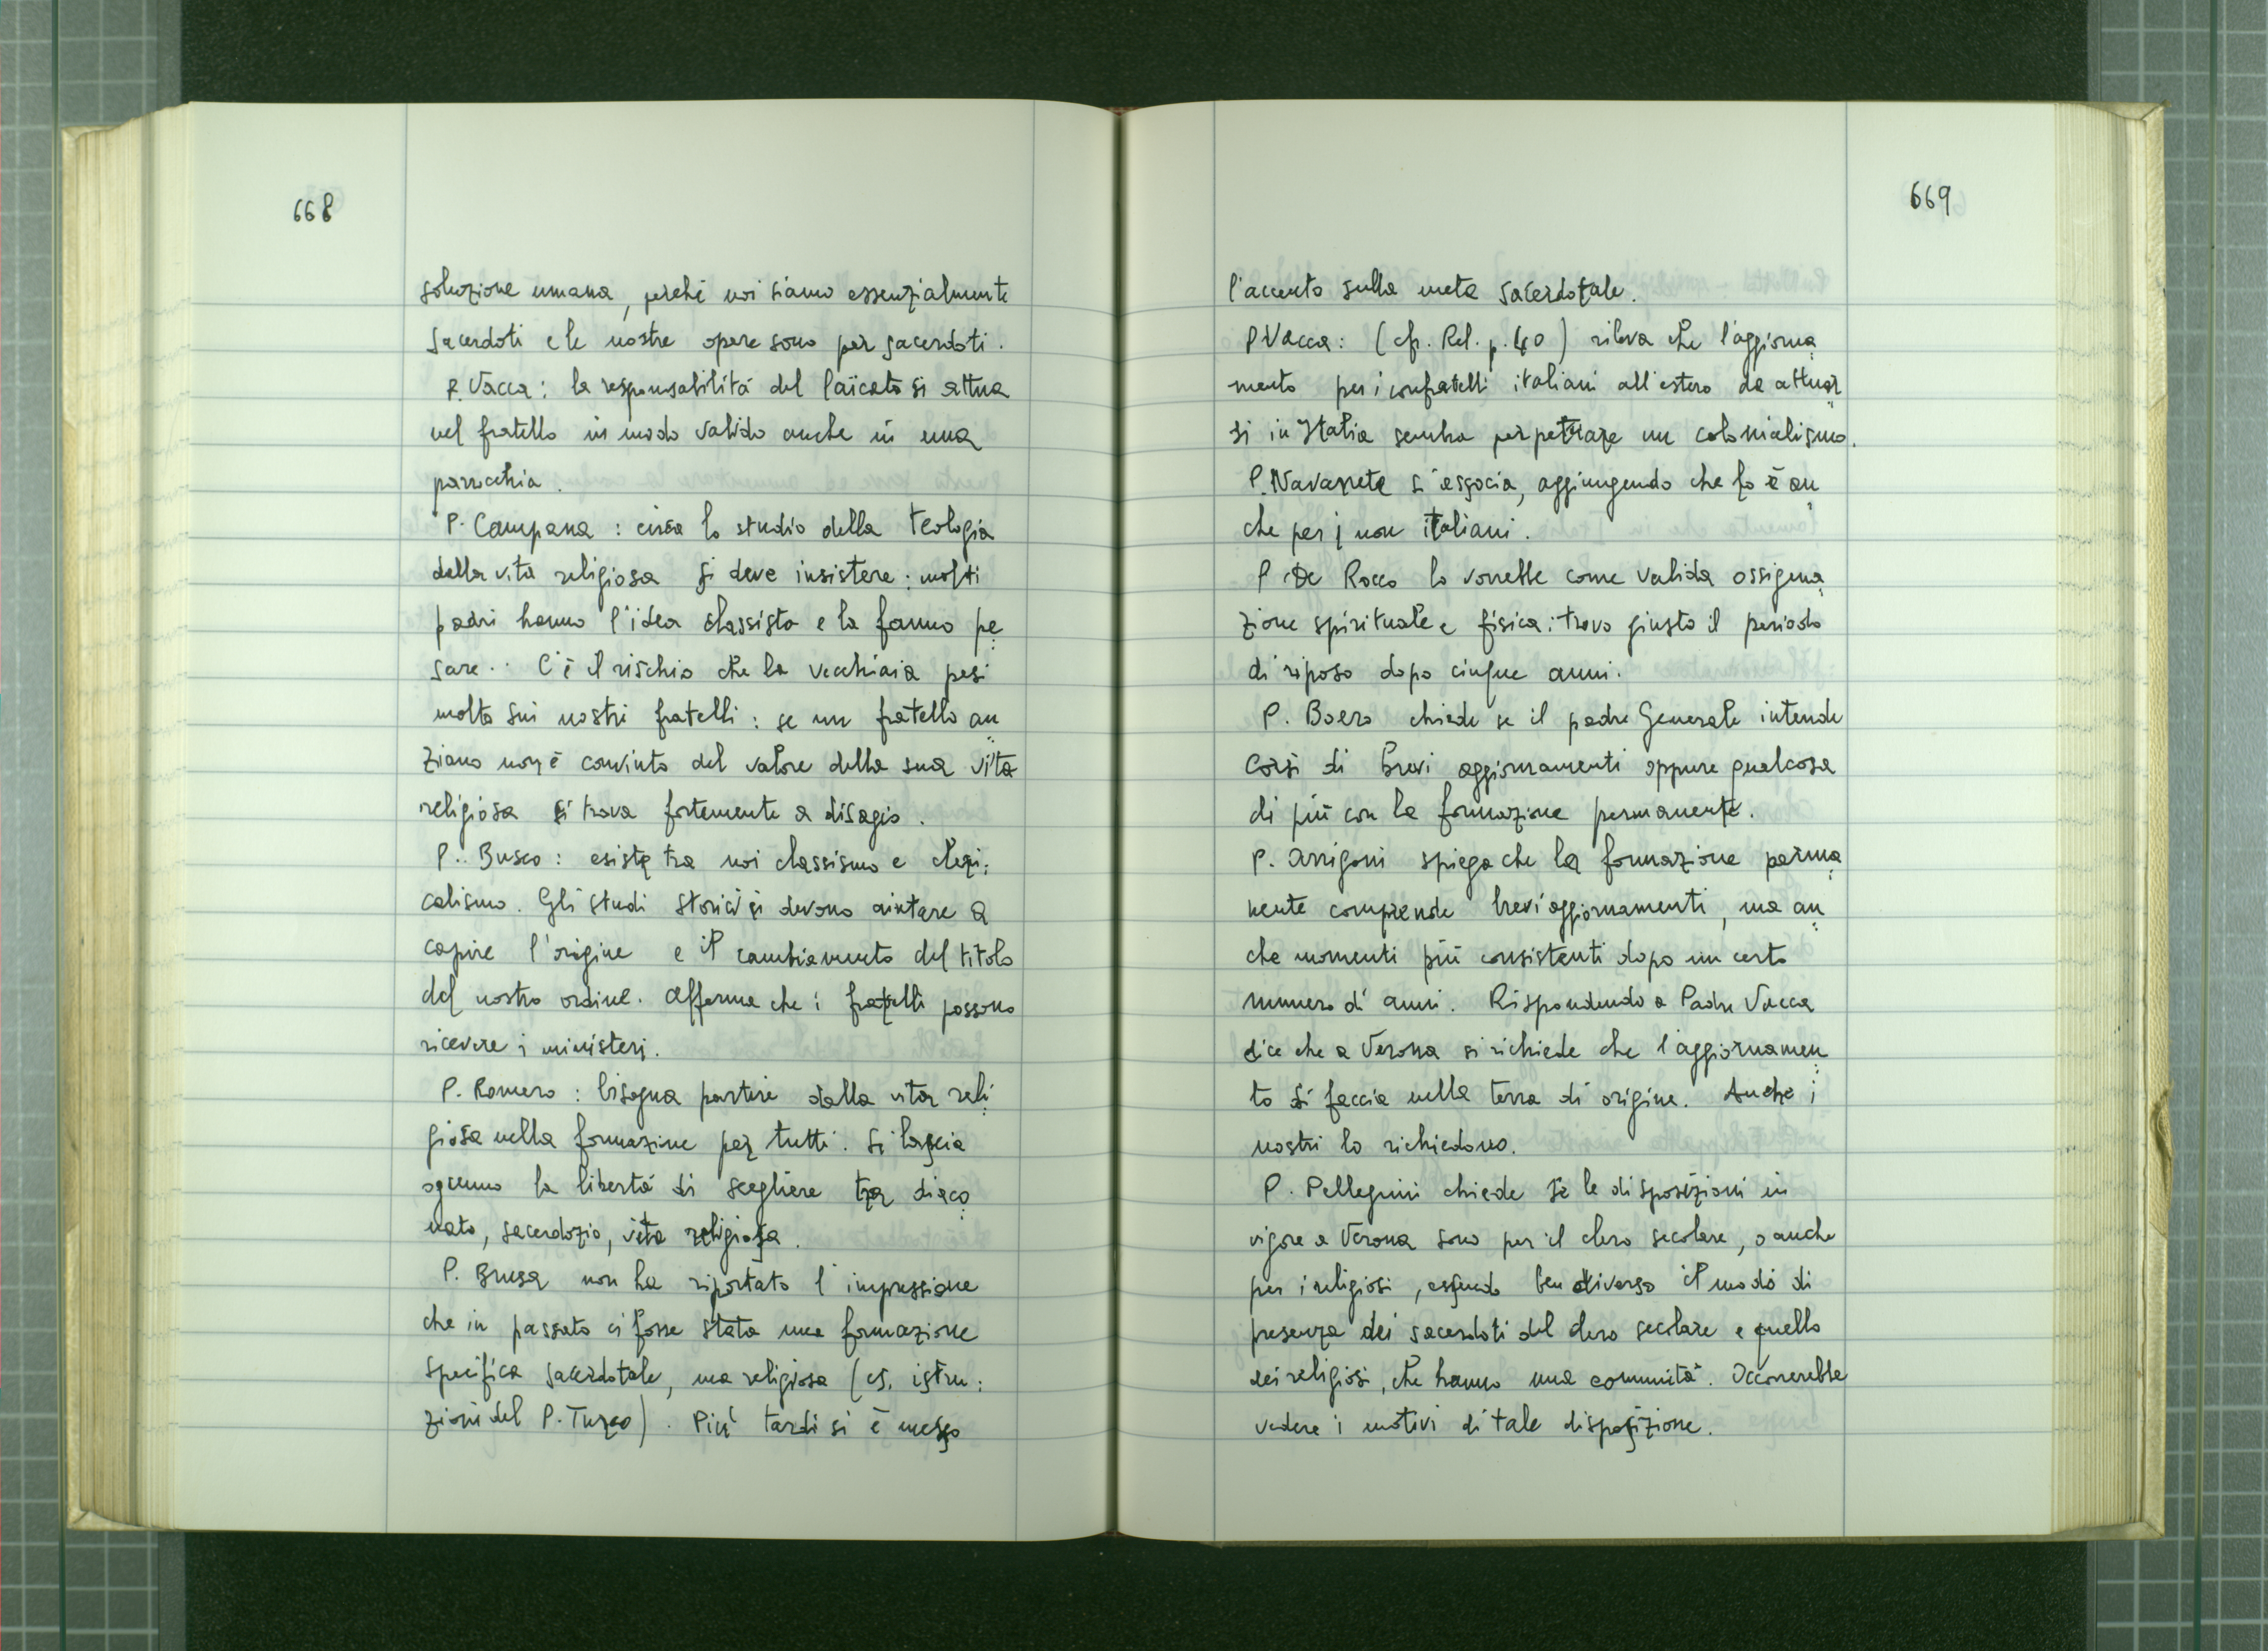 668
soluzione umana, perché noi siamo essenzialmente
sacerdoti e le nostre opere sono per sacerdoti.
P. Vacca: la responsabilità del laicato si attua
nel fratello in modo valido anche in una
parrocchia.
P. Campana: circa lo studio della teologia
della vita religiosa si deve insistere: molti
padri hanno l'idea classista e la fanno pe
sare. C'è il rischio che la vecchiaia pesi
molto sui nostri fratelli: se un fratello an
ziano non è convinto del valore della sua vita
religiosa si trova fortemente a disagio.
P. Busco: esiste tra noi classismo e cleri
calismo. Gli studi storici ci devono aiutare a
capire l'origine e il cambiamento del titolo
del nostro ordine. Afferma che i fratelli possono
ricevere i ministeri.
P. Romero: bisogna partire dalla vita reli
giosa nella formazione per tutti. Si lascia
ognuno la libertà di scegliere tra diaco
nato, sacerdozio, vita religiosa.
P. Brusa non ha riportato l'impressione
che in passato ci fosse stata una formazione
specifica sacerdotale, ma religiosa (es. istru
zioni del P. Turco). Più tardi si è messo
669
l'accento sulla meta sacerdotale.
P. Vacca: (cfr. Rel. p. 40) rileva che l'aggiorna
mento per i confratelli italiani all'estero da attuar
si in Italia sembra perpetrare un colonialismo.
P. Navarrete si associa, aggiungendo che lo è an
che per i non italiani.
P. De Rocco lo vorrebbe come valida ossigena
zione spirituale e fisica: trova giusto il periodo
di riposo dopo cinque anni.
P. Boero chiede se il padre Generale intende
corsi di brevi aggiornamenti oppure qualcosa
di più con la formazione permanente.
P. Arrigoni spiega che la formazione perma
nente comprende brevi aggiornamenti, ma an
che momenti più consistenti dopo un certo
numero di anni. Rispondendo a Padre Vacca
dice che a Verona si richiede che l'aggiornamen
to si faccia nella terra di origine. Anche i
nostri lo richiedono.
P. Pellegrini chiede se le disposizioni in
vigore a Verona sono per il clero secolare, o anche
per i religiosi, essendo ben diverso il modo di
presenza dei sacerdoti del clero secolare e quello
dei religiosi, che hanno una comunità. Occorrerebbe
vedere i motivi di tale disposizione.